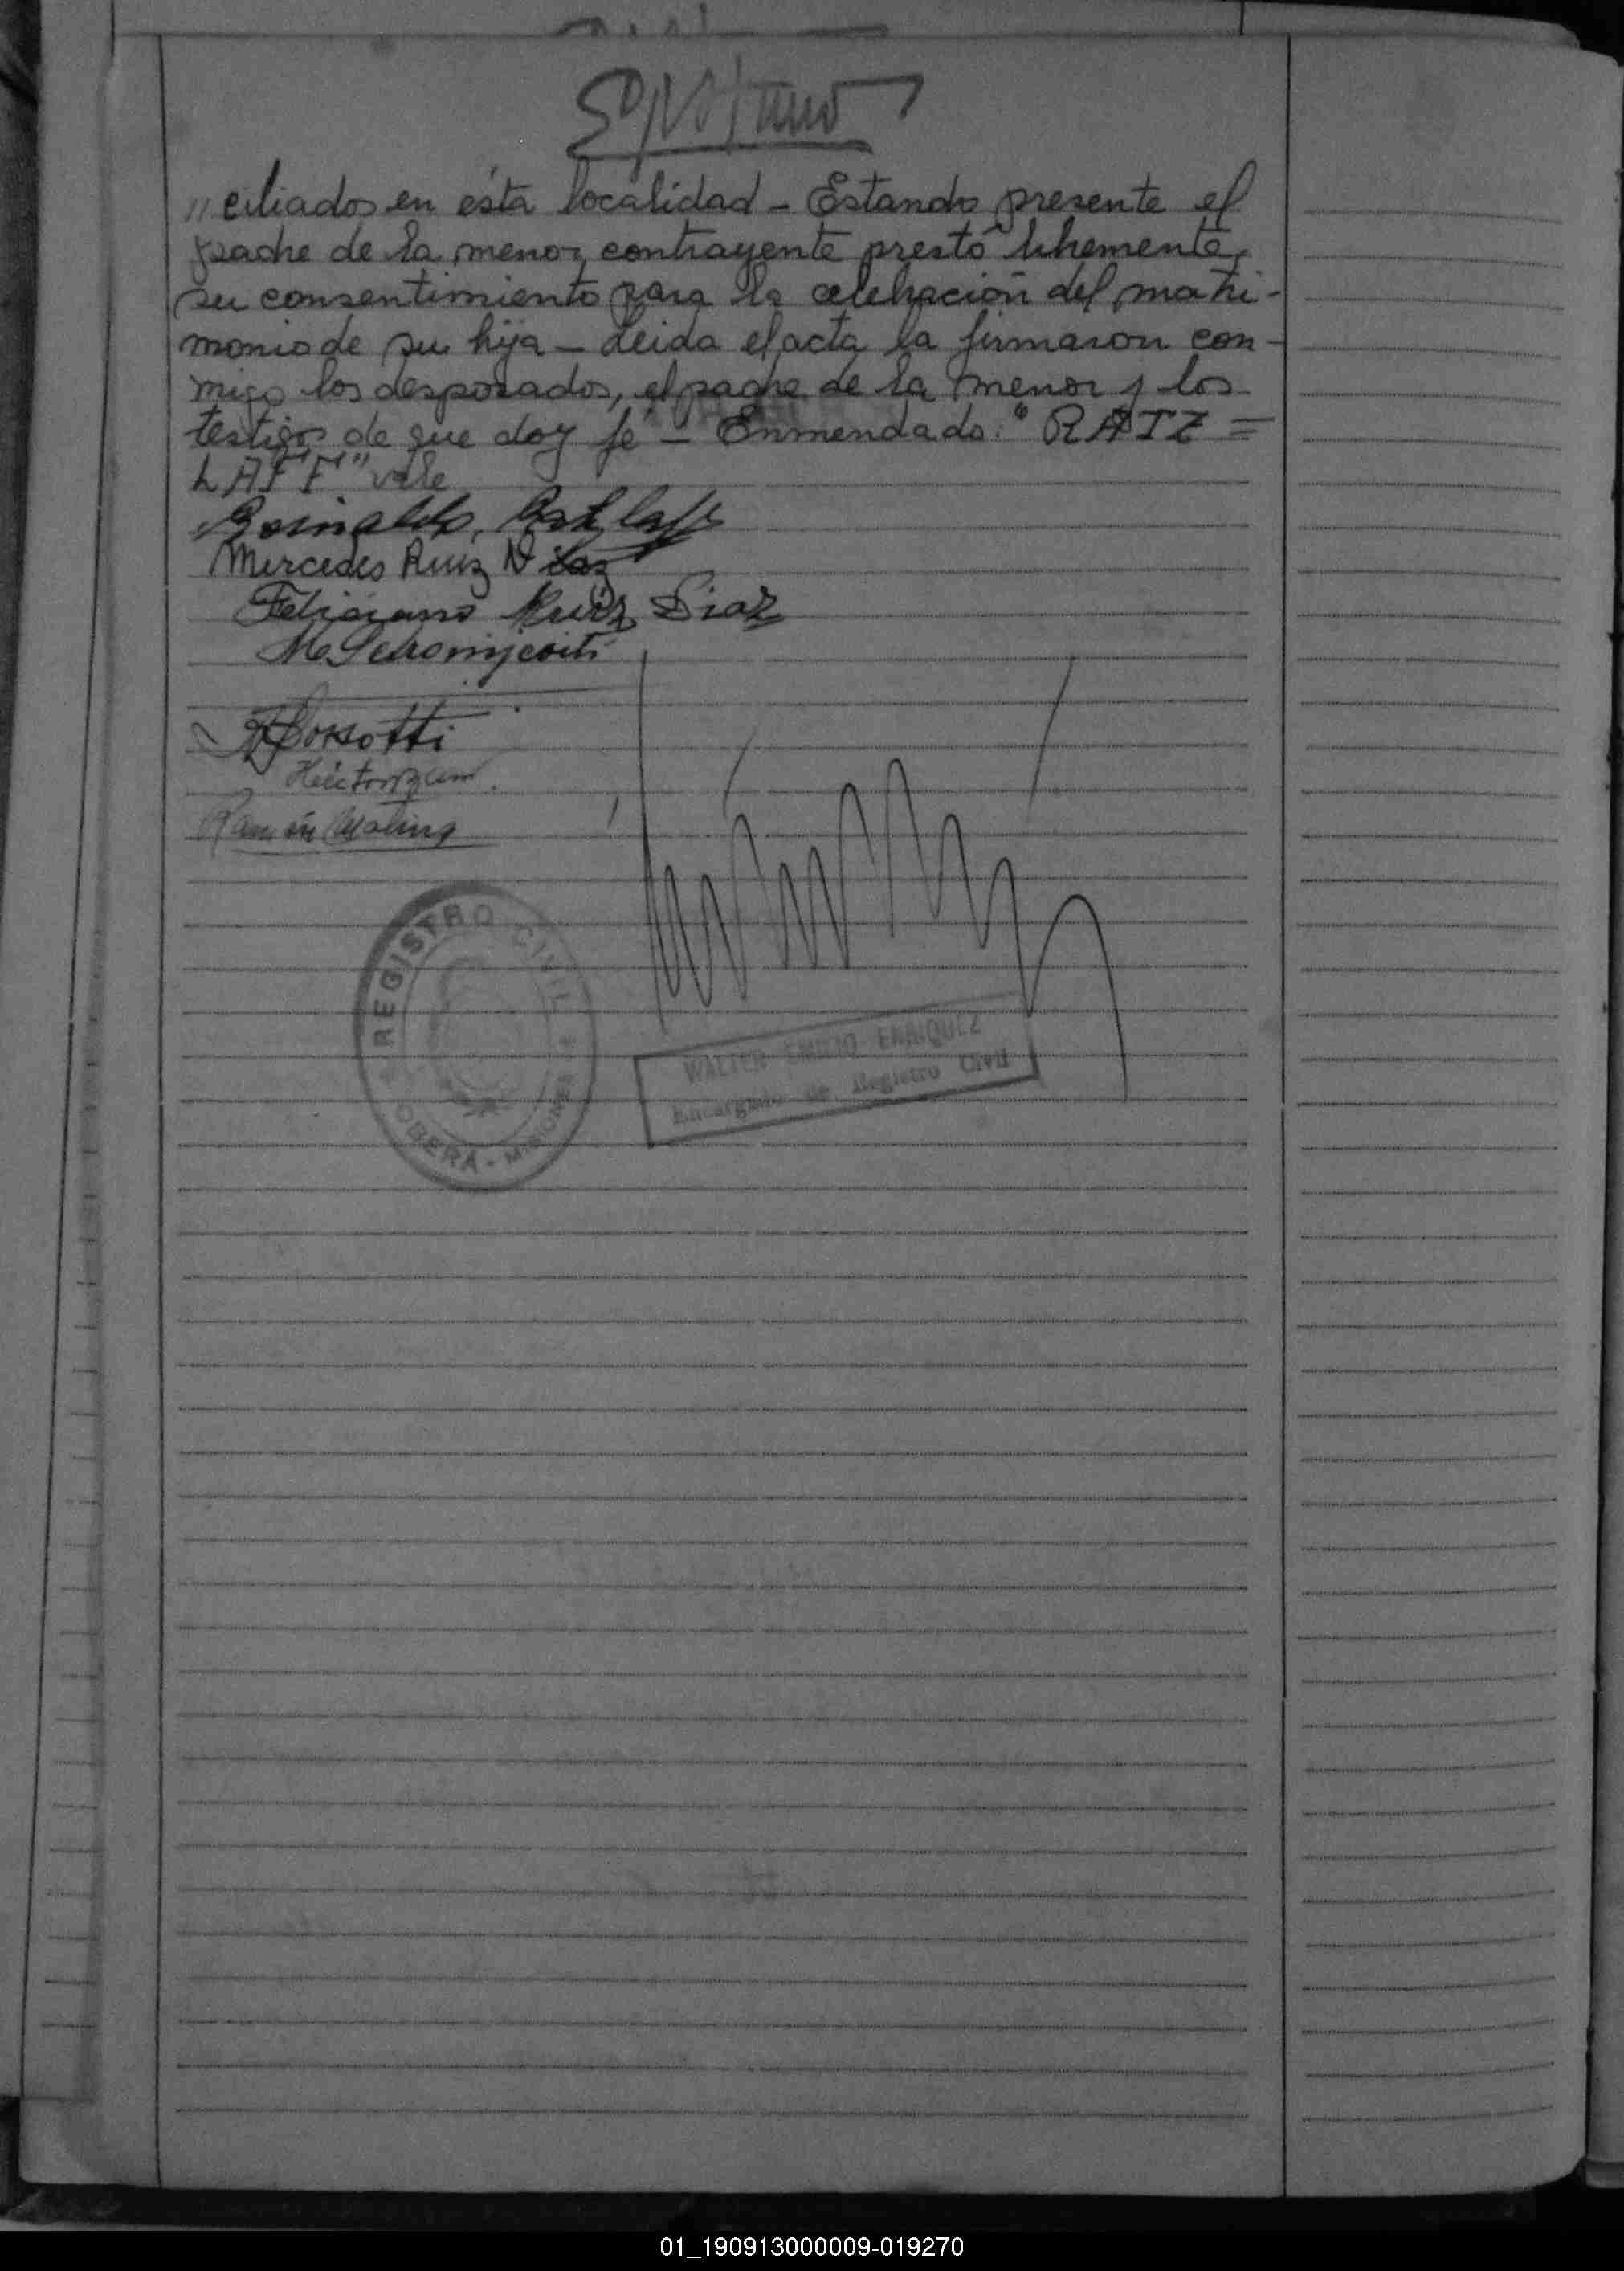 "ciliados en ésta localidad - Estando presente el
padre de la menor contrayente prestó libremente
su consentimiento para la celebración del matri-
monio de su hija - Leida el acta la firmaron con-
migo los desposados, el padre de la menor y los
testigos de que doy fé - Enmendado: "RATZ =
LAFF" vale
Mercedes Ruiz Diaz
Feliciano Ruiz Diaz
Ramón Molina
REGISTRO CIVIL
OBERA - MISIONES
WALTER EMILIO ENRIQUEZ
Encargado de Registro Civil
01_190913000009-019270